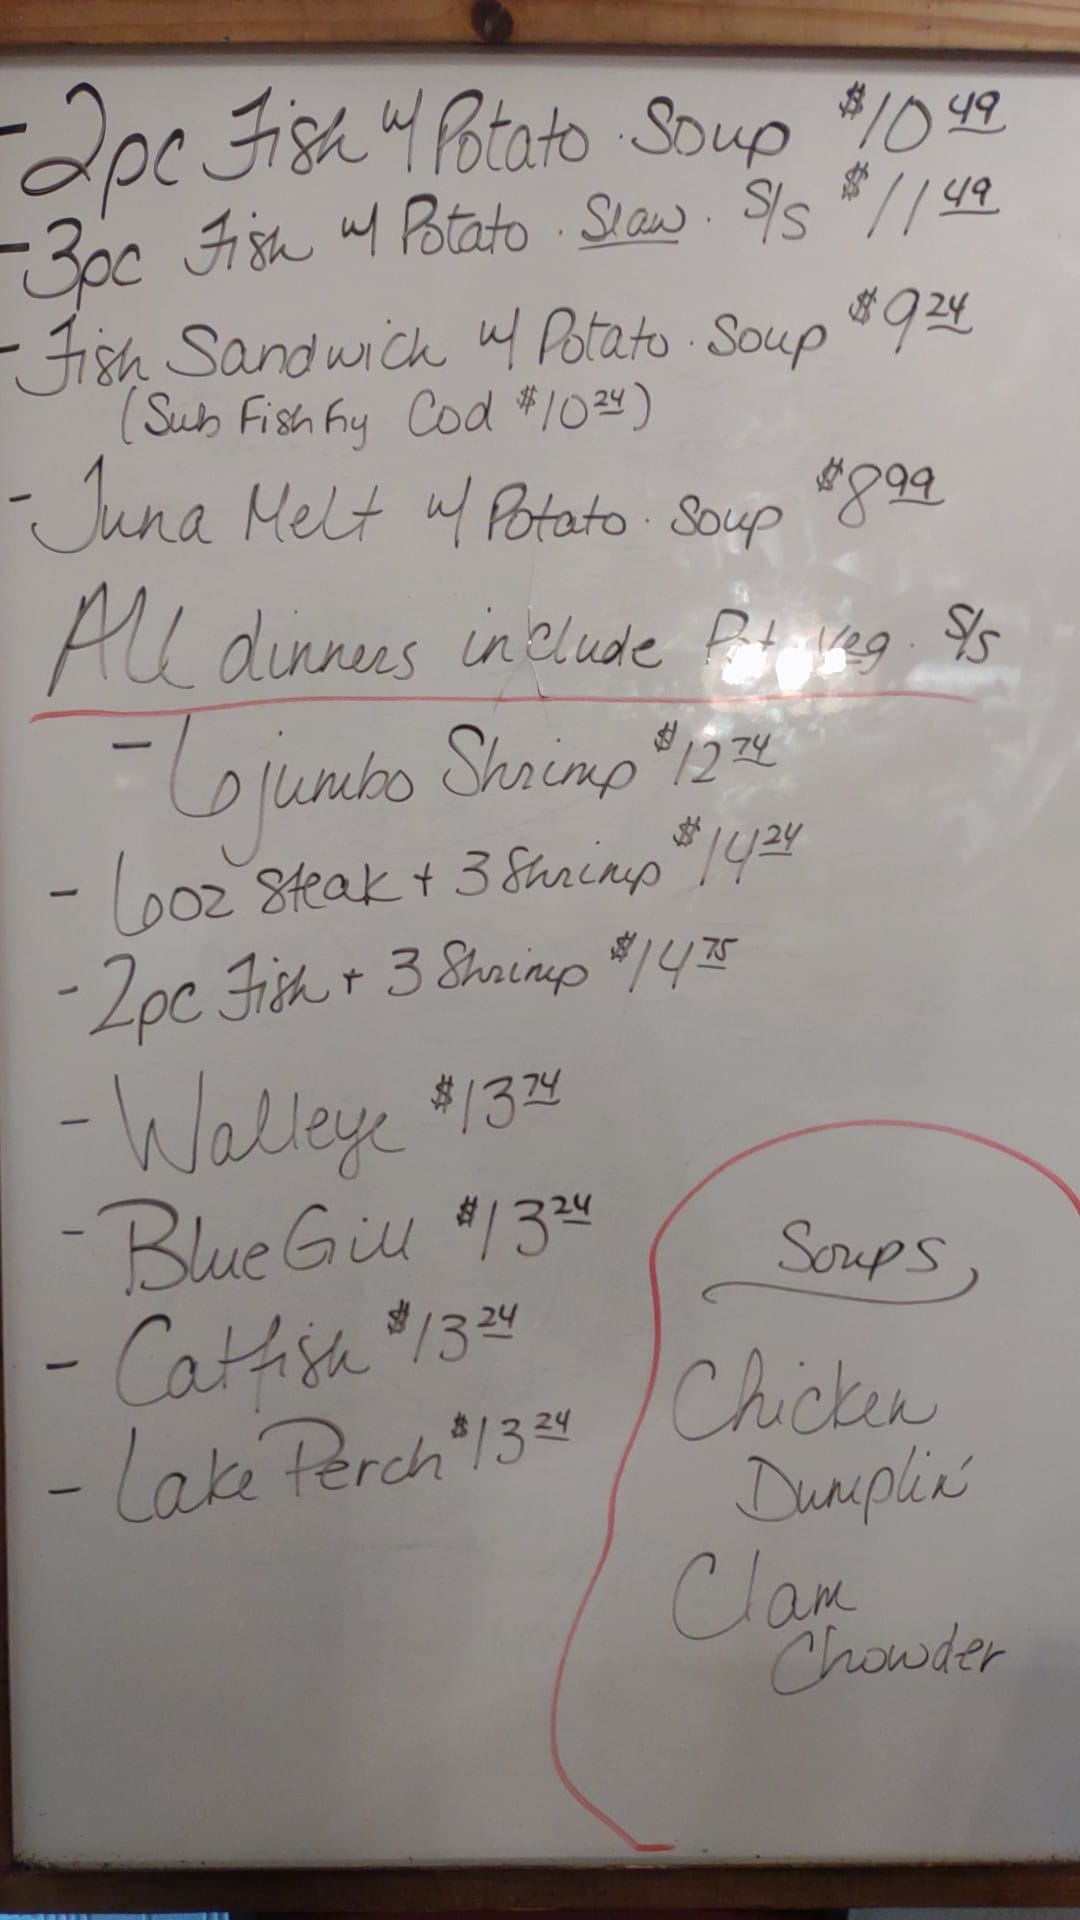 - 2pc Fish w/ Potato · Soup $10 49
- 3pc Fish w/ Potato · Slaw · S/S $11 49
- Fish Sandwich w/ Potato · Soup $9 24
(Sub Fish Fry Cod $10 24)
- Tuna Melt w/ Potato · Soup $8 99
All dinners include Pot · Veg · S/S
- 6 jumbo Shrimp $12 74
- 6oz Steak + 3 Shrimp $14 24
- 2pc Fish + 3 Shrimp $14 75
- Walleye $13 74
- Blue Gill $13 24
- Catfish $13 24
- Lake Perch $13 24
Soups
Chicken
Dumplin'
Clam
Chowder